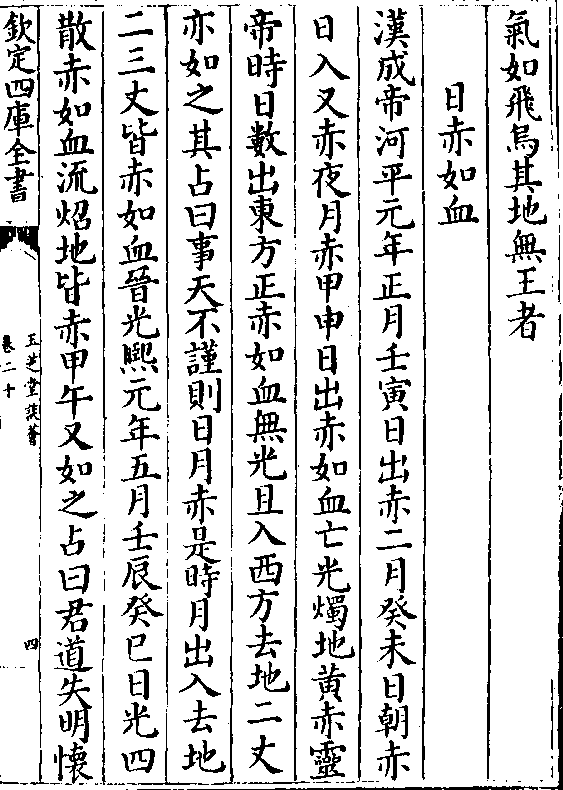 氣如飛鳥其地無王者
日赤如血
漢成帝河平元年正月壬寅日出赤二月癸未日朝赤
日入又赤夜月赤甲申日出赤如血亡光燭地黃赤靈
帝時日數出東方正赤如血無光且入西方去地二丈
亦如之其占曰事天不謹則日月赤是時月出入去地
二三丈皆赤如血晉光熙元年五月壬辰癸巳日光四
散赤如血流炤地皆赤甲午又如之占曰君道失明懷
欽定四庫全書
玉芝堂談薈
卷二十
四